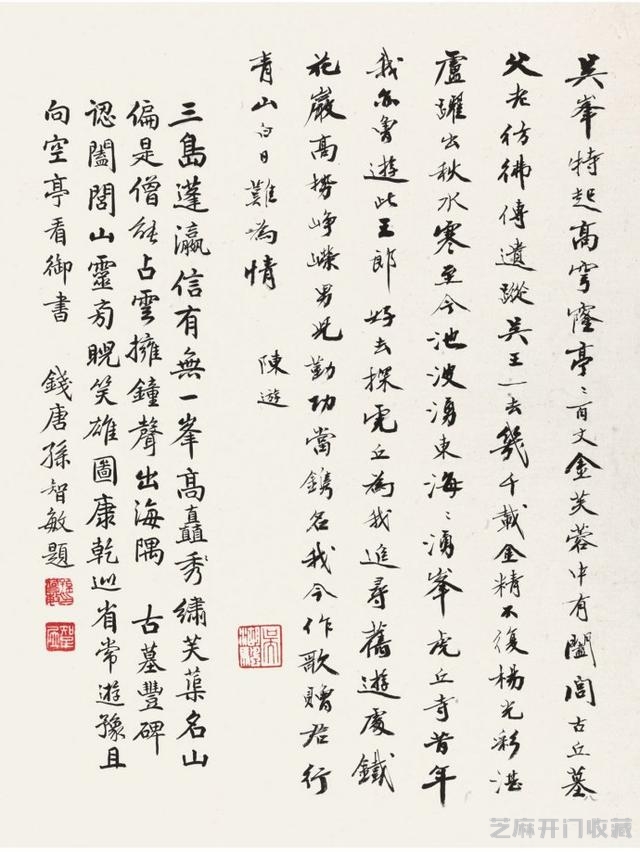 吳峯特起高穹窿亭〻百丈金芙蓉中有闔閭古丘墓
父老彷彿傳遺蹤吳王一去幾千載金精不復楊光彩湛
盧躍出秋水寒至今池波湧東海〻湧峯虎丘寺昔年
我亦曾遊此王郎好去探虎丘為我追尋舊遊處鐵
花巖高勢崢嶸男兒勳功當鐫名我今作歌贈君行
青山白日難為情
陳遊
三島蓬瀛信有無一峯高矗秀繡芙蕖名山
偏是僧能占雲擁鐘聲出海隅 古墓豐碑
認闔閭山靈方睨笑雄圖康乾巡省常遊豫且
向空亭看御書 錢唐孫智敏題
芝麻开门收藏